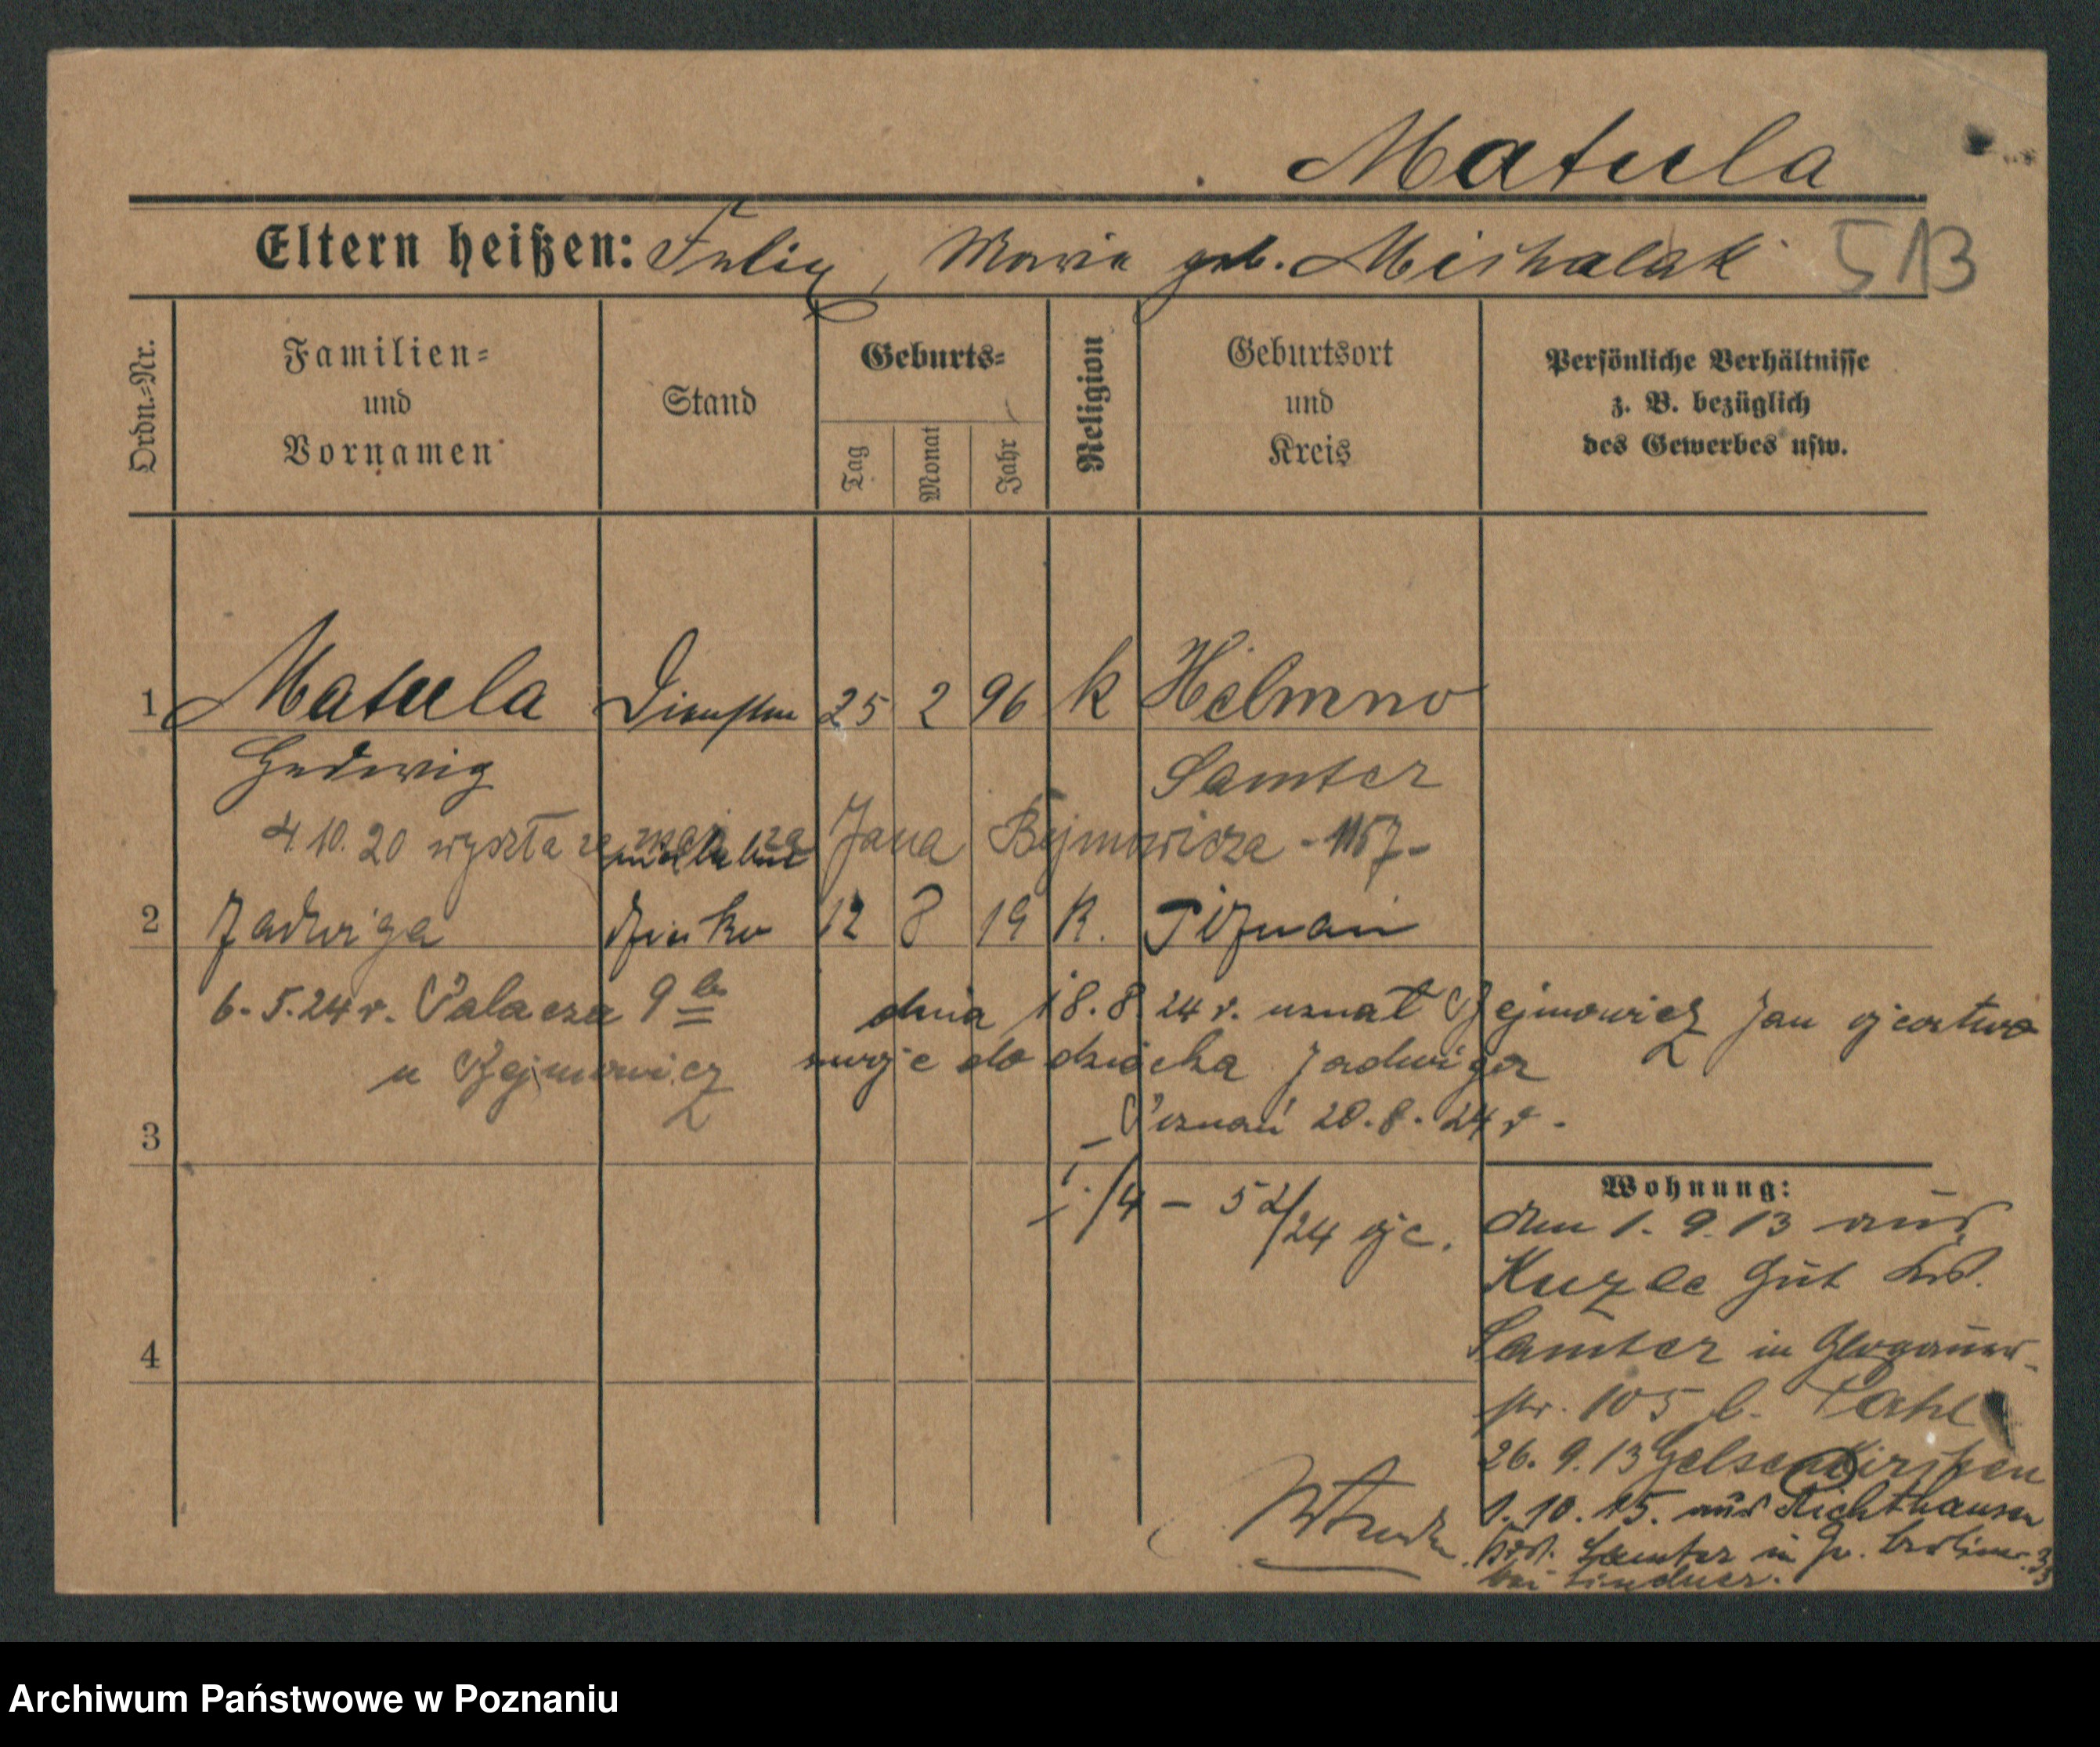 Matula
Eltern heißen: Felix, Maria geb. Michalak 513
Ordn.-Nr.
Familien-
und
Vornamen
Stand
Geburts-
Tag
Monat
Jahr
Religion
Geburtsort
und
Kreis
Persönliche Verhältnisse
z. B. bezüglich
des Gewerbes usw.
1 Matula 25 2 96 k Helmno
Hedwig Samter
4.10.20 wyszła za mąż za Jana Bejmowicza -1157-
2 Jadwiga 12 8 19 K. Poznań
6.5.24 r. Palacza 9 dnia 18.8.24 r. uznał Bejmowicz Jan ojcostwo
u Bejmowicz swoje do dziecka Jadwiga
Poznań 20.8.24 r.
3
Wohnung:
/4 - 52/24 ojc. den 1.9.13 aus
Gut
4 Samter in Glogauer-
str. 105 b.
26.9.13 Gelsenkirchen
1.10.15. aus Richthausen
Samter in Gr. Berliner
bei Lindner.
Archiwum Państwowe w Poznaniu